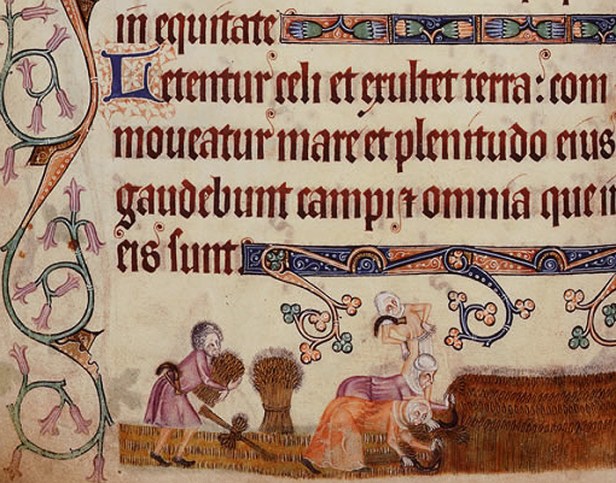 in equitate
Letentur celi et exultet terra: com
moueatur mare et plenitudo eius
gaudebunt campi ⁊ omnia que in
eis sunt